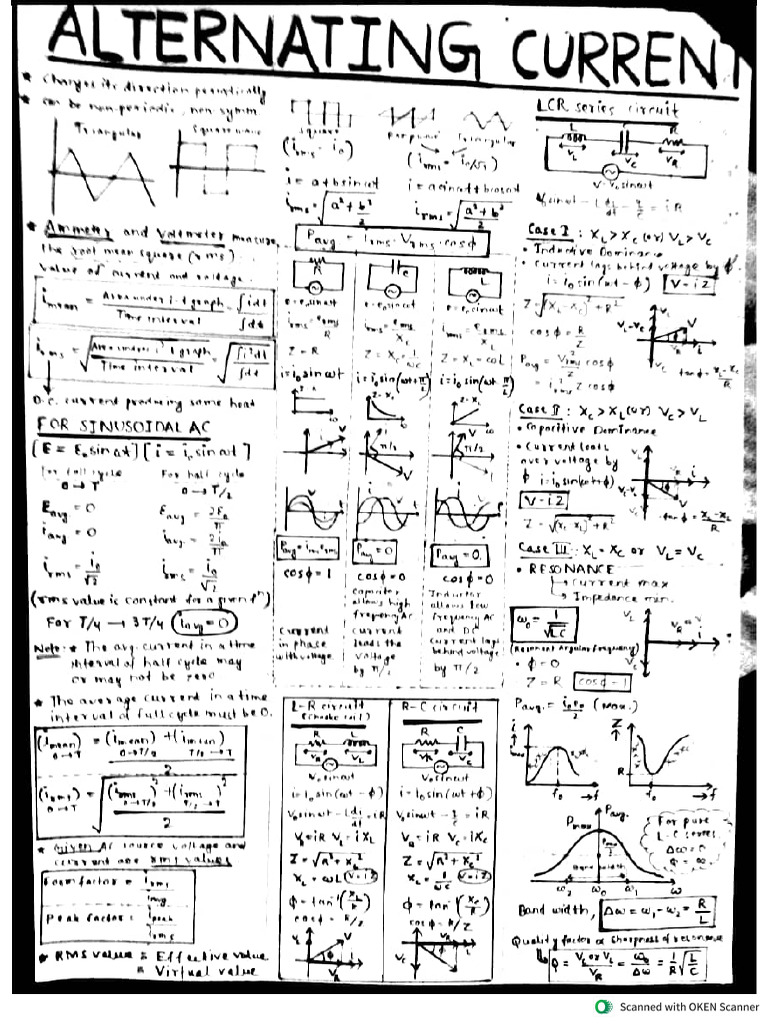 ALTERNATING CURRENT
* Changes its direction periodically
* can be non-periodic, non symm.
Triangular
Square wave
* Ammeter and voltmeter measure
the root mean square (rms)
value of current and voltage.
i mean = Area under i-t graph / Time interval = ∫idt / ∫dt
i rms = √(Area under i² t graph / Time interval) = √(∫i²dt / ∫dt)
D.C. current producing same heat
FOR SINUSOIDAL AC
[E = E₀ sin ωt] [i = i₀ sin ωt]
For full cycle
0 → T
For half cycle
0 → T/2
E avg = 0
E avg = 2E₀/π
i avg = 0
i avg = 2i₀/π
i rms = i₀/√2
i rms = i₀/√2
(rms value is constant for a given fⁿ)
For T/4 → 3T/4 (i avg = 0)
Note: * The avg. current in a time
interval of half cycle may
or may not be zero
* The average current in a time
interval of full cycle must be 0.
(i mean) 0→T = ((i mean) 0→T/2 + (i mean) T/2→T) / 2
(i rms) 0→T = √(((i rms)² 0→T/2 + (i rms)² T/2→T) / 2)
* Given AC source voltage and
current are rms values
Form factor = i rms / i avg
Peak factor = i peak / i rms
* RMS value = Effective value
= Virtual value
Square
Triangular
(i rms = i₀)
(i rms = i₀/√3)
i = a + b sin ωt
i = a sin ωt + b cos ωt
i rms = √(a² + b²/2)
i rms = √((a² + b²)/2)
P avg = i rms · V rms · cos ϕ
R
C
L
e = e₀ sin ωt
e = e₀ sin ωt
e = e₀ sin ωt
i rms = e rms / R
i rms = e rms / Xc
i rms = e rms / XL
Z = R
Z = Xc = 1/ωC
Z = XL = ωL
i = i₀ sin ωt
i = i₀ sin(ωt + π/2)
i = i₀ sin(ωt - π/2)
P avg = i rms e rms
P avg = 0
P avg = 0
cos ϕ = 1
cos ϕ = 0
cos ϕ = 0
Capacitor
allows high
frequency AC
Inductor
allows low
frequency AC
and DC
current
in phase
with voltage
current
leads the
voltage
by π/2
current lags
behind voltage
by π/2
L-R circuit
(choke coil)
R L
V₀ sin ωt
i = i₀ sin(ωt - ϕ)
V₀ sin ωt - L di/dt = iR
V R = iR V L = iXL
Z = √(R² + XL²)
XL = ωL (V = iZ)
ϕ = tan⁻¹(XL/R)
cos ϕ = R/Z
R-C circuit
R C
V₀ sin ωt
i = i₀ sin(ωt + ϕ)
V₀ sin ωt - q/C = iR
V R = iR V C = iXc
Z = √(R² + Xc²)
Xc = 1/ωC (V = iZ)
ϕ = tan⁻¹(Xc/R)
cos ϕ = R/Z
LCR series circuit
L C R
V L V C V R
V = V₀ sin ωt
V₀ sin ωt - L di/dt - q/C = iR
Case I: XL > Xc (or) VL > Vc
• Inductive Dominance
• Current lags behind voltage by ϕ
i = i₀ sin(ωt - ϕ) V = iZ
Z = √((XL - Xc)² + R²)
cos ϕ = R/Z
P avg = V rms i rms cos ϕ
= i² rms Z cos ϕ
tan ϕ = (XL - Xc)/R
Case II: Xc > XL (or) Vc > VL
• Capacitive Dominance
• Current leads
over voltage by
ϕ i = i₀ sin(ωt + ϕ)
V = iZ
Z = √((Xc - XL)² + R²)
tan ϕ = (Xc - XL)/R
Case III: XL = Xc or VL = Vc
• RESONANCE
→ current max
→ Impedance min.
ω₀ = 1/√LC
(Resonant Angular frequency)
• ϕ = 0
Z = R cos ϕ = 1
P avg = i₀e₀/2 (Max.)
i
i max
f₀
f
Z
R
f₀
f
P avg.
P max
P max/2
Band width
ω₂ ω₀ ω₁ ω
For pure
L-C series
Δω = 0
Q = ∞
Band width, Δω = ω₁ - ω₂ = R/L
Quality factor or Sharpness of resonance
Q = V L or V C / V R = ω₀/Δω = 1/R √(L/C)
Scanned with OKEN Scanner